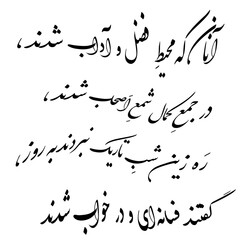 آنان که محیط فضل و آداب شدند،
در جمع کمال شمع اصحاب شدند،
ره زین شب تاریک نبردند به روز،
گفتند فسانه‌ای و در خواب شدند